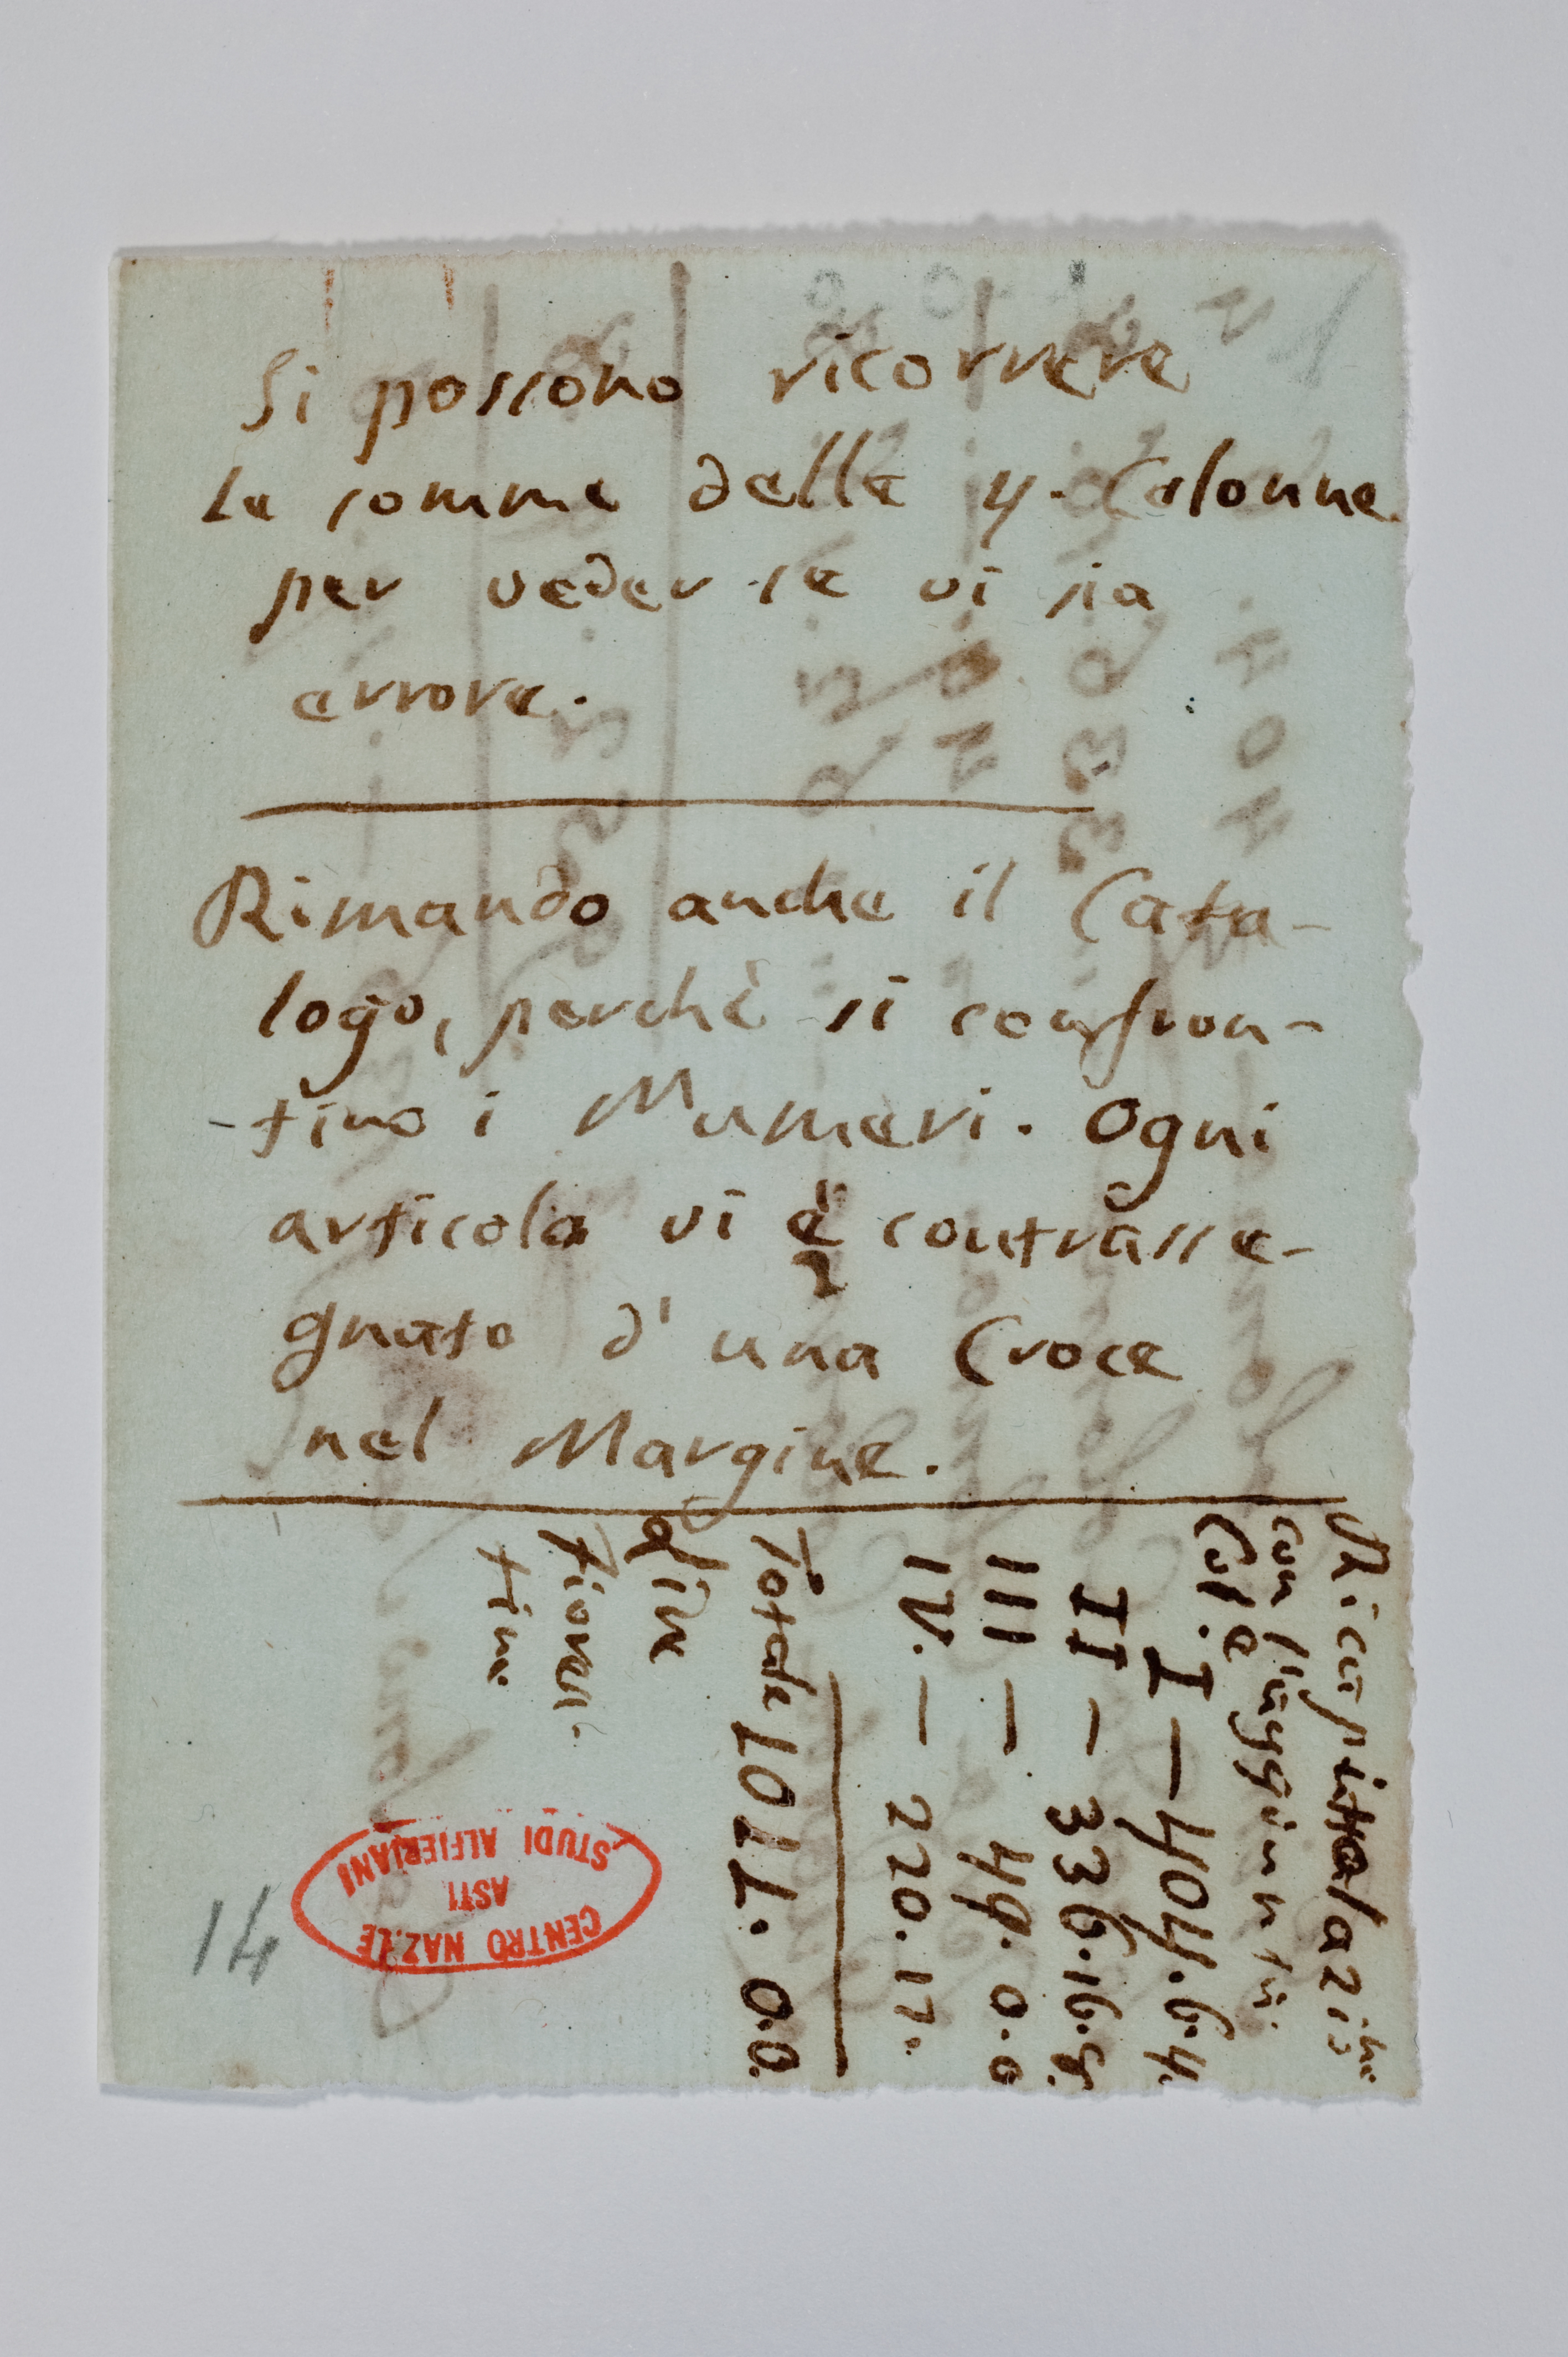 Si possono ricorrere
le somme delle 4. Colonne
per veder se vi sia
errore.
Rimando anche il Cata-
logo, perchè si confron-
-tino i Numeri. Ogni
articolo vi è contrasse-
gnato d'una Croce
nel Margine.
Ricapitolazi:ne
Col.e
I — 404.6.4.
II — 336.16.8.
III — 49.0.0
IV. — 220.17.
Totale 1011.0.0.
Lire
Fioren-
tine
CENTRO NAZ.LE
STUDI ALFIERIANI
ASTI
14